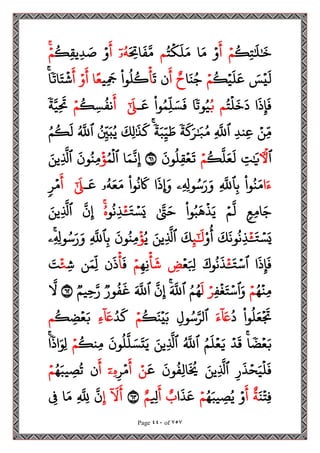 خَٰلَٰتِكُمْۥٓ أَوْ مَا مَلَكْتُمُ مَّفَاتِحَهُۥٓ أَوْ صَدِيقِكُمْۚ
لَيْسَ عَلَيْكُمْ جُنَاحٌ أَن تَأْكُلُوا۟ جَمِيعًا أَوْ أَشْتَاتًاۚ
فَإِذَا دَخَلْتُم بُيُوتًا فَسَلِّمُوا۟ عَلَىٰٓ أَنفُسِكُمْ تَحِيَّةً
مِّنْ عِندِ ٱللَّهِ مُبَٰرَكَةً طَيِّبَةًۚ كَذَٰلِكَ يُبَيِّنُ ٱللَّهُ لَكُمُ
ٱلْءَايَٰتِ لَعَلَّكُمْ تَعْقِلُونَ ٦١ إِنَّمَا ٱلْمُؤْمِنُونَ ٱلَّذِينَ
ءَامَنُوا۟ بِٱللَّهِ وَرَسُولِهِۦ وَإِذَا كَانُوا۟ مَعَهُۥ عَلَىٰٓ أَمْرٍ
جَامِعٍ لَّمْ يَذْهَبُوا۟ حَتَّىٰ يَسْتَـْٔذِنُوهُۚ إِنَّ ٱلَّذِينَ
يَسْتَـْٔذِنُونَكَ أُو۟لَٰٓئِكَ ٱلَّذِينَ يُؤْمِنُونَ بِٱللَّهِ وَرَسُولِهِۦۚ
فَإِذَا ٱسْتَـْٔذَنُوكَ لِبَعْضِ شَأْنِهِمْ فَأْذَن لِّمَن شِئْتَ
مِنْهُمْ وَٱسْتَغْفِرْ لَهُمُ ٱللَّهَۚ إِنَّ ٱللَّهَ غَفُورٌ رَّحِيمٌ ٦٢ لَّا
تَجْعَلُوا۟ دُعَآءَ ٱلرَّسُولِ بَيْنَكُمْ كَدُعَآءِ بَعْضِكُم
بَعْضًاۚ قَدْ يَعْلَمُ ٱللَّهُ ٱلَّذِينَ يَتَسَلَّلُونَ مِنكُمْ لِوَاذًاۚ
فَلْيَحْذَرِ ٱلَّذِينَ يُخَالِفُونَ عَنْ أَمْرِهِۦٓ أَن تُصِيبَهُمْ
فِتْنَةٌ أَوْ يُصِيبَهُمْ عَذَابٌ أَلِيمٌ ٦٣ أَلَآ إِنَّ لِلَّهِ مَا فِى
Page ٤٤٠ of ٧٥٧